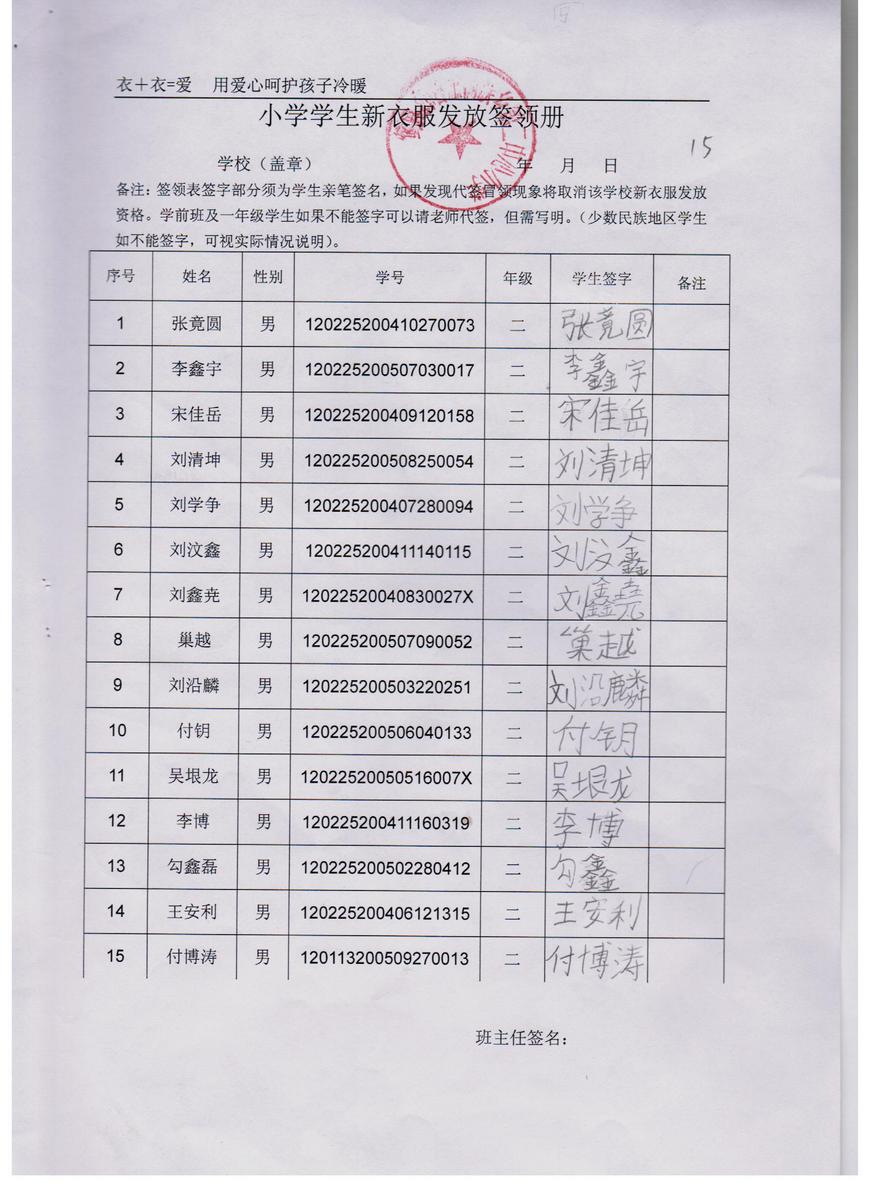 衣＋衣=爱 用爱心呵护孩子冷暖
小学学生新衣服发放签领册
15
学校（盖章） 年 月 日
备注：签领表签字部分须为学生亲笔签名，如果发现代签冒领现象将取消该学校新衣服发放
资格。学前班及一年级学生如果不能签字可以请老师代签，但需写明。（少数民族地区学生
如不能签字，可视实际情况说明）。
序号 姓名 性别 学号 年级 学生签字 备注
1 张竟圆 男 120225200410270073 二 张竟圆
2 李鑫宇 男 120225200507030017 二 李鑫宇
3 宋佳岳 男 120225200409120158 二 宋佳岳
4 刘清坤 男 120225200508250054 二 刘清坤
5 刘学争 男 120225200407280094 二 刘学争
6 刘汶鑫 男 120225200411140115 二 刘汶鑫
7 刘鑫尧 男 12022520040830027X 二 刘鑫尧
8 巢越 男 120225200507090052 二 巢越
9 刘沿麟 男 120225200503220251 二 刘沿麟
10 付钥 男 120225200506040133 二 付钥
11 吴垠龙 男 12022520050516007X 二 吴垠龙
12 李博 男 120225200411160319 二 李博
13 勾鑫磊 男 120225200502280412 二 勾鑫
14 王安利 男 120225200406121315 二 王安利
15 付博涛 男 120113200509270013 二 付博涛
班主任签名：